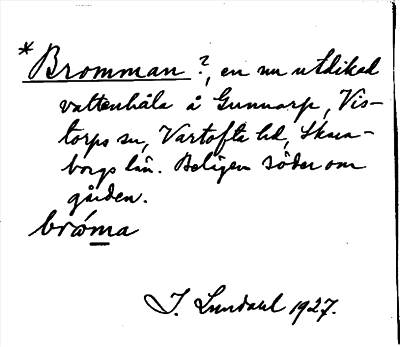 *Bromman?, en nu utdikad
vattenhåla å Gunnarp, Vis-
torps sn, Vartofta hd, Skara-
borgs län. Belägen söder om
gården.
bróma
J. Lundahl 1927.